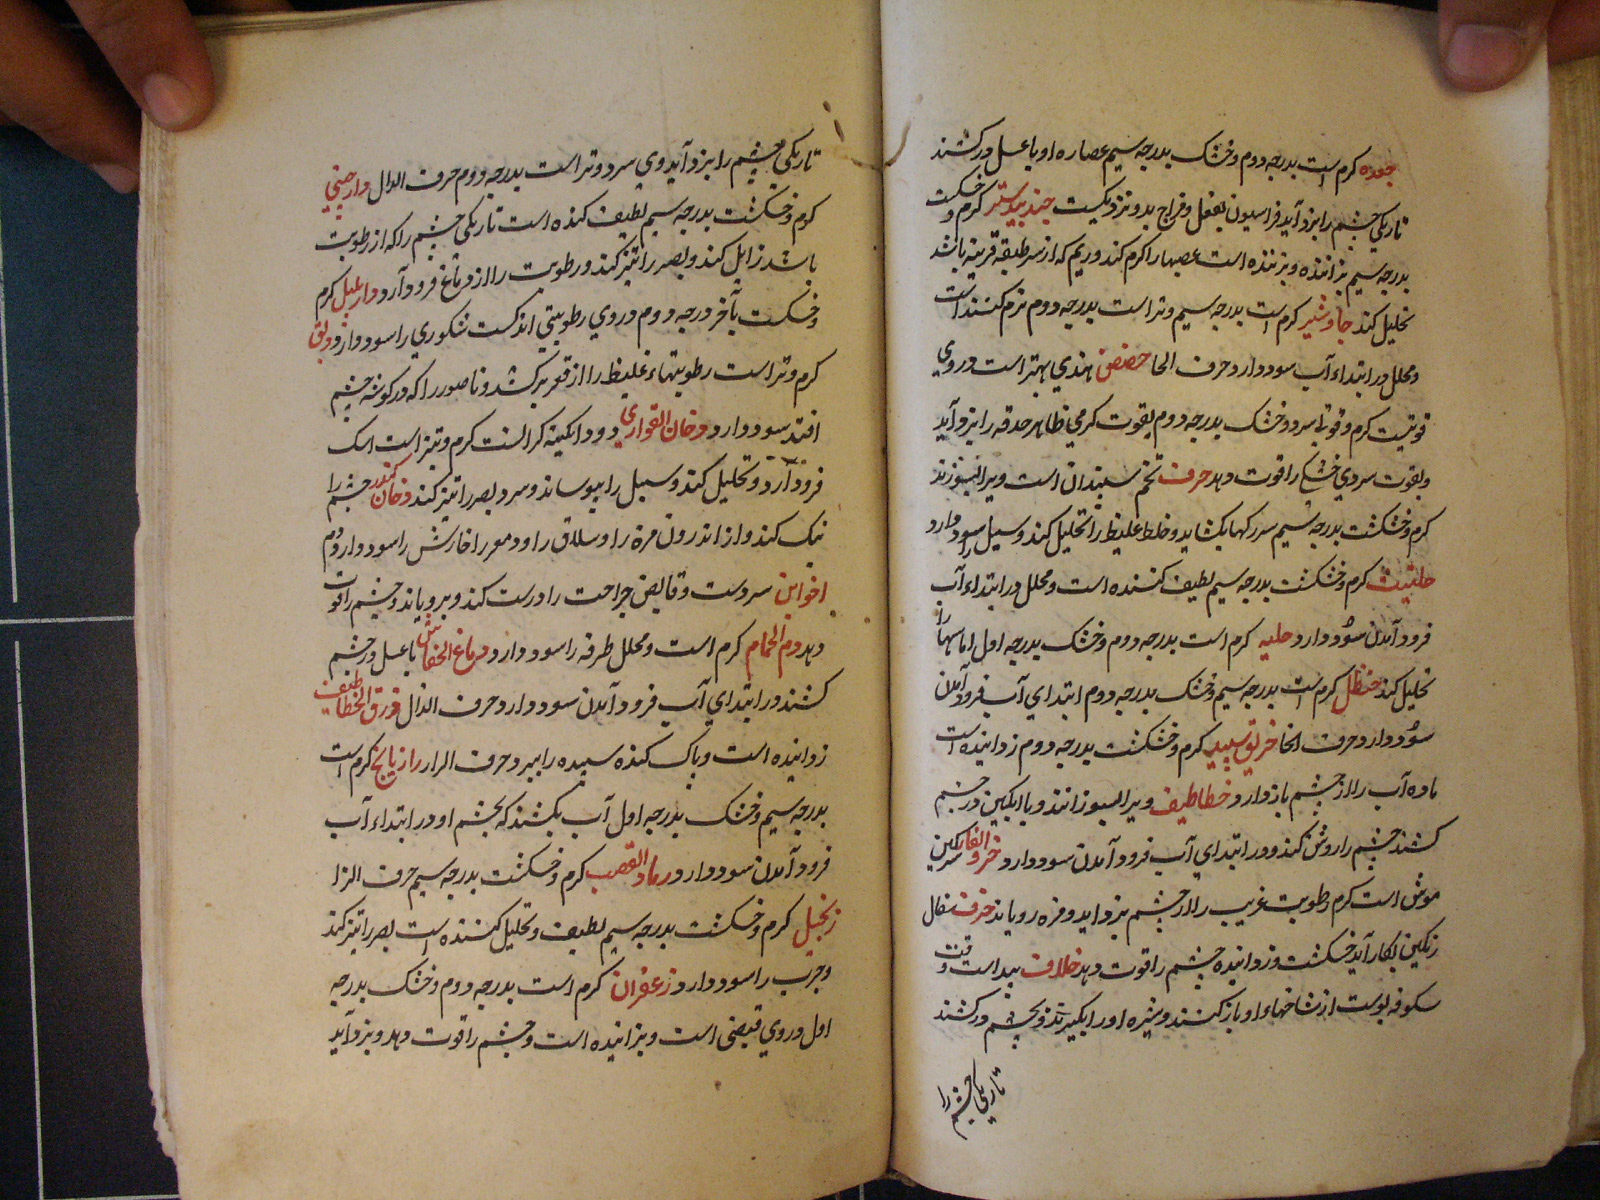 جعده کرم است بدرجه دوم و خشک بدرجه سیم عصاره او با عسل درکشند
تاریکی چشم را بزداید فراسیون بفعل و مزاج بدو نزدیکست جندبیدستر کرم و خشکست
بدرجه سیم بزاننده و پزنده است عصبها را کرم کند و ریم که از پس طبقه قرینه باشد
تحلیل کند جاوشیر کرم است بدرجه سیم و تر است بدرجه دوم نرم کننده است
و محلل در ابتداء آب سود دارد حرف الحا حضض هندی بهتر است در وی
قوتیست کرم و قوتی سرد و خشک بدرجه دوم بقوت کرمی ظاهر حدقه را بزداید
و بقوت سردی چشم را قوت دهد حرف تخم سپندان است ویرا بسوزند
کرم و خشکست بدرجه سیم سر رکها بکشاید و خلط غلیظ را تحلیل کند و سبل را سود دارد
حلتیث کرم و خشکست بدرجه سیم لطیف کننده است و محلل در ابتداء آب
فرود آمدن سود دارد حلبه کرم است بدرجه دوم و خشک بدرجه اول اماسها را
تحلیل کند حنظل کرم است بدرجه سیم و خشک بدرجه دوم ابتدای آب فرود آمدن
سود دارد حرف الخا خربق سپید کرم و خشکست بدرجه دوم زداینده است
ماده آب را از چشم باز دارد خطاطیف ویرا بسوزانند و با انکبین در چشم
کشند چشم را روشن کند و در ابتدای آب فرود آمدن سود دارد خرو الفار سرکین
موش است کرم رطوبت غریب را از چشم بزداید و مژه رویاند خزف سفال
رنکین بکار آید خشکست و زداینده چشم را قوت دهد خلاف بید است وقت
شکوفه پوست از شاخهاء او باز کنند و شیره او را بکیرند و بچشم درکشند
تاریکی چشم را
تاریکی چشم را بزداید وی سرد و تر است بدرجه دوم حرف الدال دارچینی
کرم و خشکست بدرجه سیم لطیف کننده است تاریکی چشم را که از رطوبت
باشد زایل کند و بصر را تیز کند و رطوبت را از دماغ فرود آرد دارفلفل کرم
و خشکست بآخر درجه دوم در وی رطوبتی اندکست شبکوری را سود دارد دبق
کرم و تر است رطوبتهاء غلیظ را از قعر برکشد و ناصور را که در کوشه چشم
افتد سود دارد دخان القواریر دود ابکینه کرانست کرم و تیز است اشک
فرود آرد و تحلیل کند و سبل را بپوساند و سرد بصر را تیز کند دخان کندر چشم را
نیک کند و از اندرون مژه را و سلاق را و دمعه را خارش را سود دارد دم
اخوین سردست و قابض جراحت را درست کند و برویاند و چشم را قوت
دهد دم الحمام کرم است و محلل طرفه را سود دارد دماغ الخفاش با عسل در چشم
کشند در ابتدای آب فرود آمدن سود دارد حرف الذال ذرق الخطاطیف
زداینده است و پاک کننده سپیده را ببرد حرف الرا رازیانج کرم است
بدرجه سیم و خشک بدرجه اول آب بکشند که بچشم او در ابتداء آب
فرود آمدن سود دارد رماد القصب کرم و خشکست بدرجه سیم حرف الزا
زنجبیل کرم و خشکست بدرجه سیم لطیف و تحلیل کننده است بصر را تیز کند
و جرب را سود دارد زعفران کرم است بدرجه دوم و خشک بدرجه
اول در وی قبضی است و بزاننده است و چشم را قوت دهد و بزداید